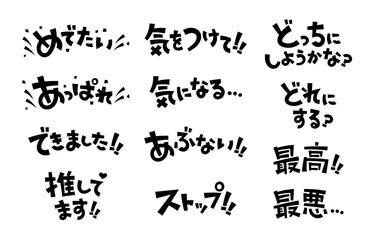 めでたい
あっぱれ
できました!!
推して
ます!!
気をつけて!!
気になる…
あぶない!!
ストップ!!
どっちに
しようかな?
どれに
する?
最高!!
最悪…